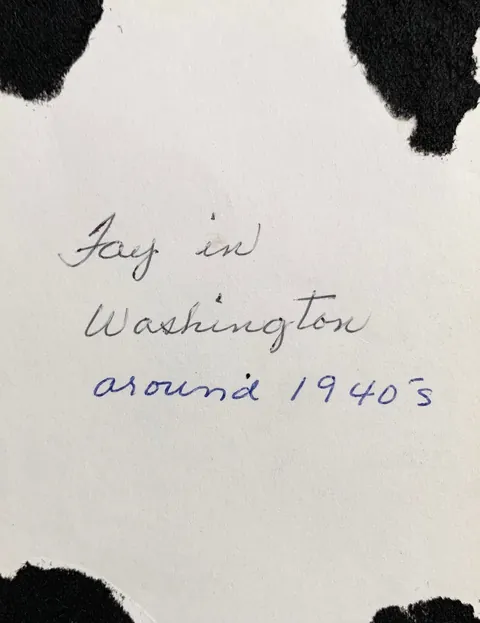 Fay in
Washington
around 1940's